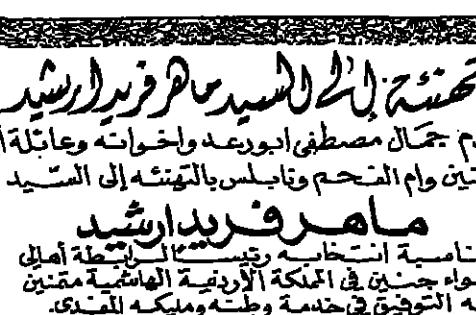 تهنئة إلى السيد ماهر فريد ارشيد
م جمال مصطفى ابورعد واخوانه وعائلة أ
نين وام الفحم ونابلس بالتهنئه إلى السيد
ماهر فريد ارشيد
ناسبة انتخابه رئيساً لرابطة أهالي
واء جنين في المملكة الأردنية الهاشمية متمنين
ه التوفيق في خدمة وطنه ومليكه المفدى.